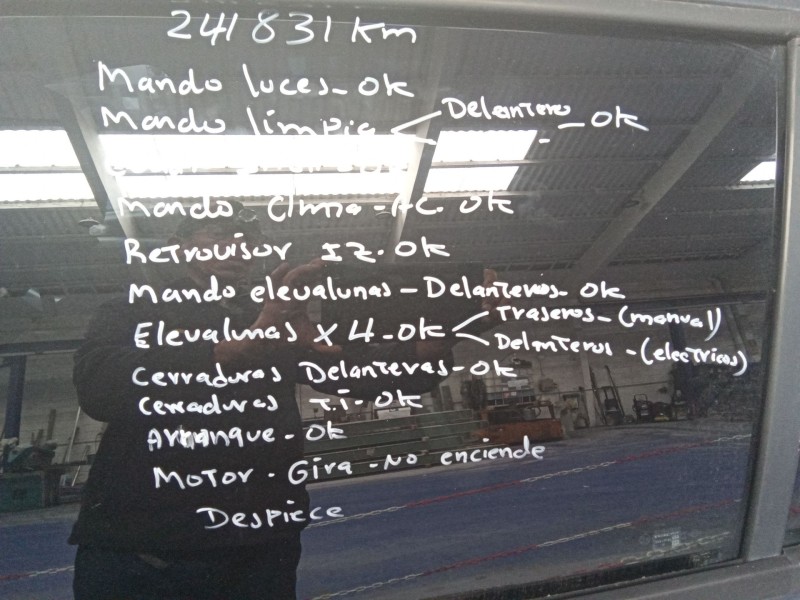 241831 km
Mando luces - ok
Mando limpia < Delantero - ok
Mando Clima - AC. ok
Retrovisor IZ. ok
Mando elevalunas - Delanteros - ok
Elevalunas x 4 - ok < Traseros - (manual)
Delanteros - (electricos)
Cerraduras Delanteras - ok
Cerraduras T.I - ok
Arranque - ok
Motor - Gira - No enciende
Despiece